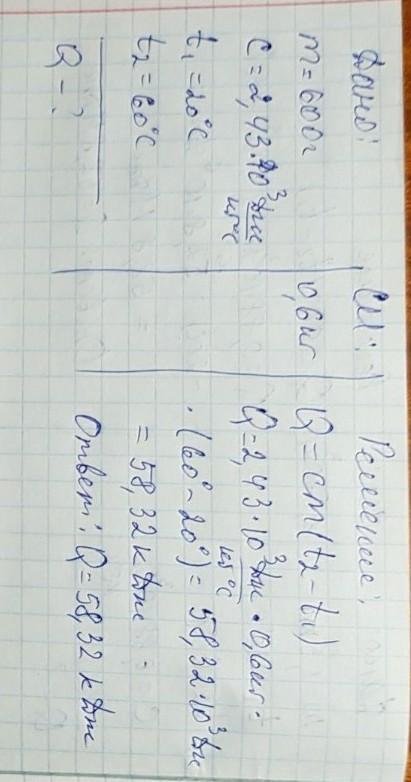 Дано:
m = 600г
c = 2,43·10³ Дж/кг°С
t₁ = 20°С
t₂ = 60°С
Q - ?
СИ:
0,6кг
Решение:
Q = cm(t₂ - t₁)
Q = 2,43·10³ Дж/кг°С · 0,6кг ·
· (60° - 20°) = 58,32·10³ Дж
= 58,32 кДж
Ответ: Q = 58,32 кДж